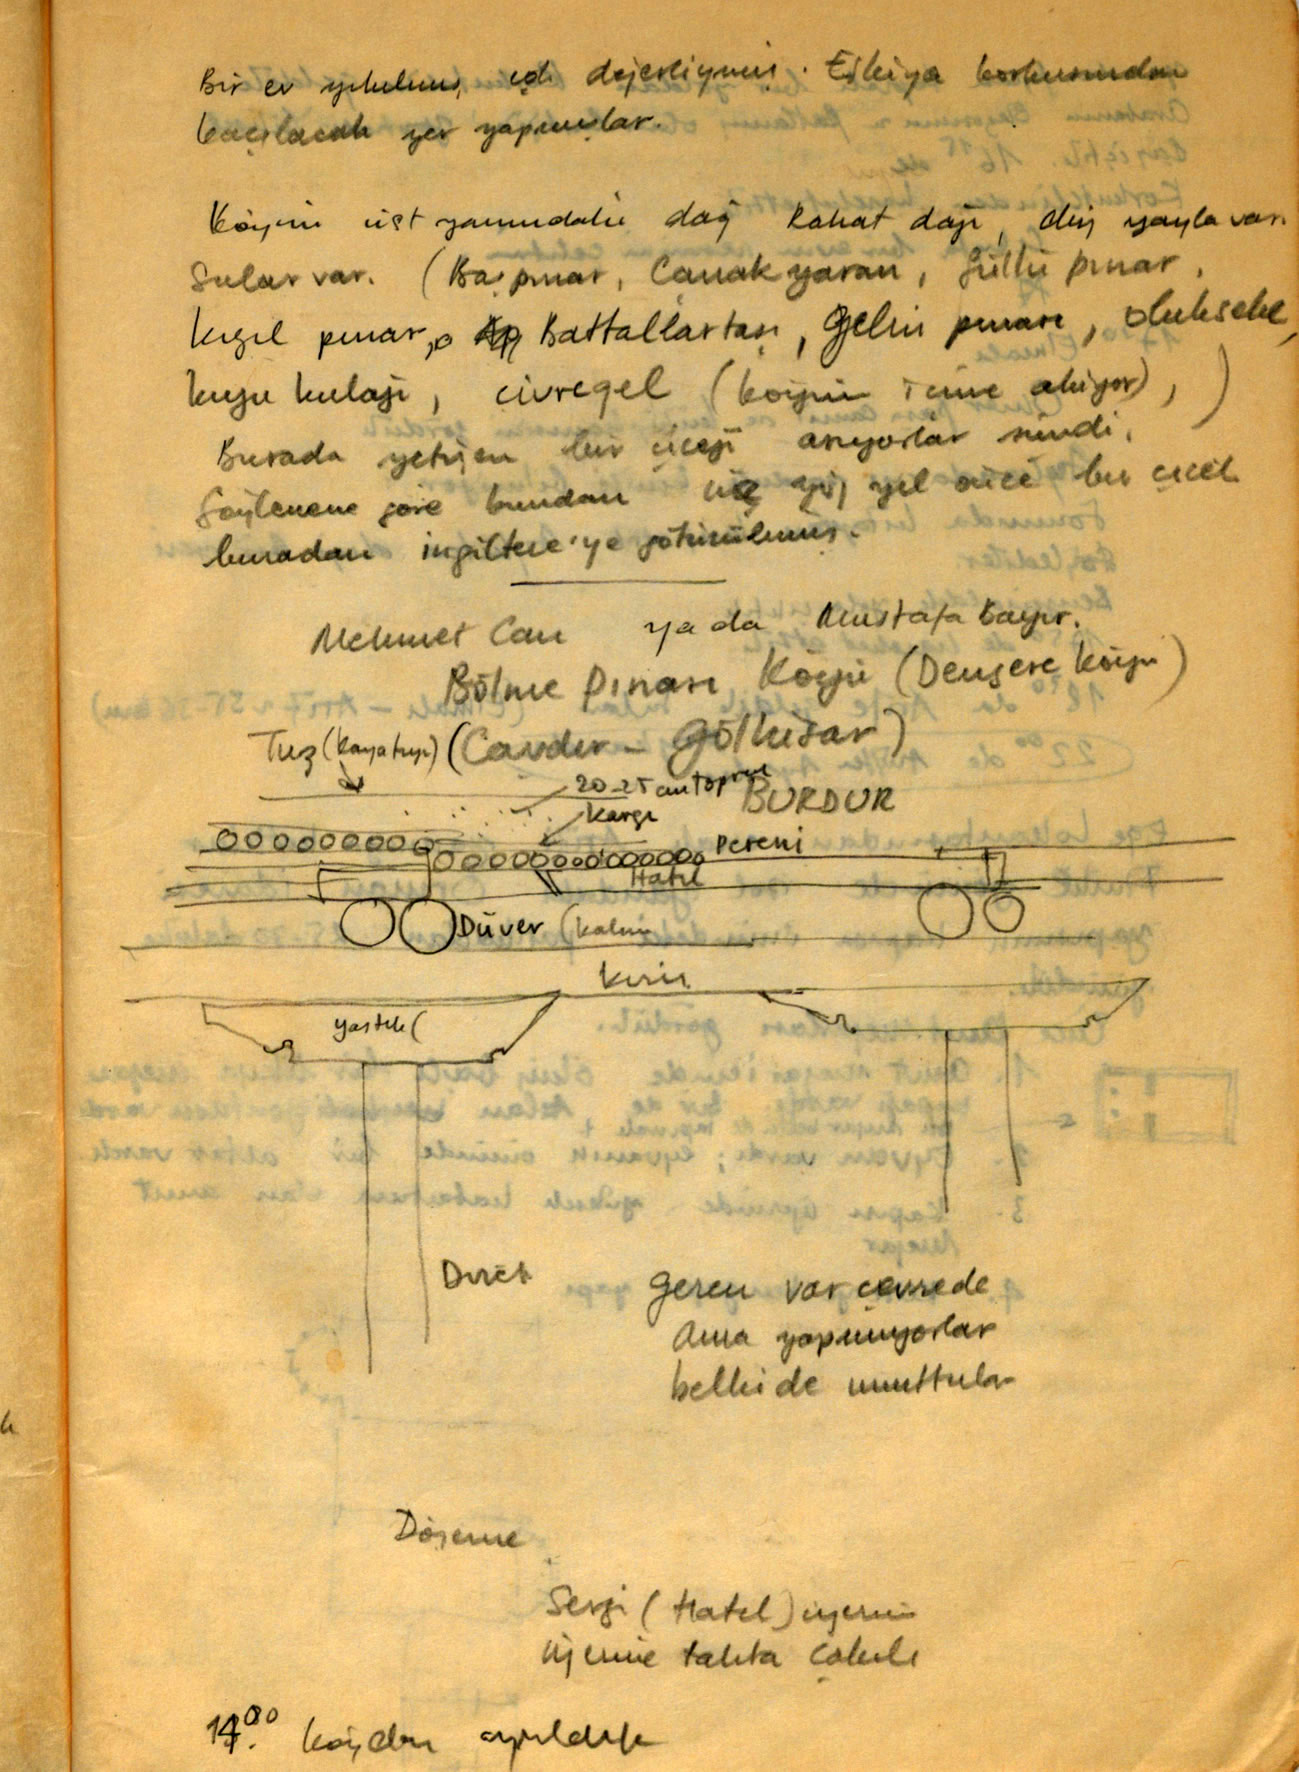 Bir ev yıkılmış, çok değerliymiş. Eşkiya korkusundan
kaçılacak yer yapmışlar.
Köyün üst yanındaki dağ Rahat dağı, düğ yayla var.
Sular var. (Başpınar, Çanak yaran, Güllü pınar,
kızıl pınar, Battallartaşı, Gelin pınarı, olukseke,
kuyu kulağı, civregel (köyün içine akıyor), )
Burada yetişen bir çiçeği arıyorlar şimdi.
Söylenene göre bundan üç yüz yıl önce bir çiçek
buradan ingiltere'ye götürülmüş.
Mehmet Can ya da Mustafa Bayır.
Bölme Pınarı Köyü (Dengere köyü)
Tuz (kayatuzu) (Çavdır - Gölhisar)
20-25 cm toprak BURDUR
Kargı
Pereni
Hatıl
Düver (kalın
Kiriş
yastık (
Direk
Geren var çevrede
Ama yapmıyorlar
belki de unuttular
Döşeme
Sergi (Hatıl) üzerine
üzerine tahta çakılı
14.00 köyden ayrıldık